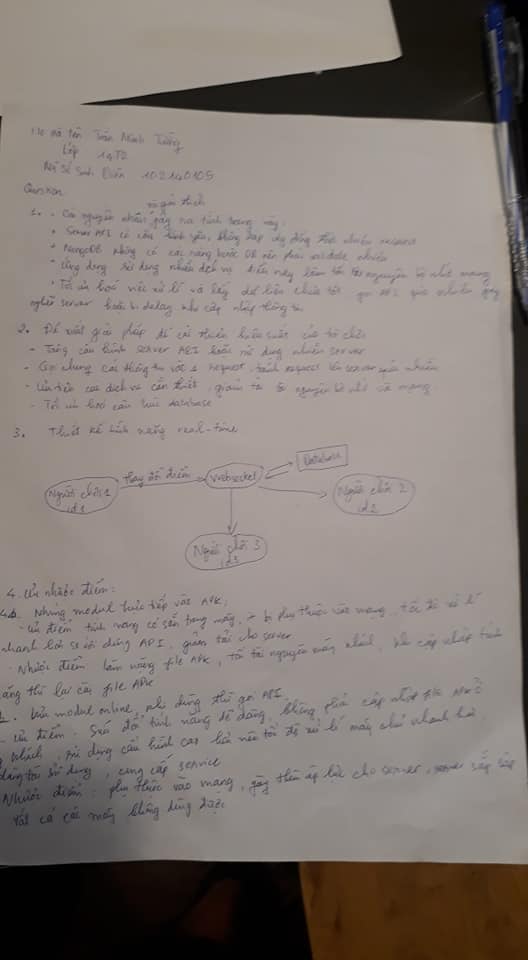 Họ và tên Trần Minh Tường
Lớp 14T2
Mã Số Sinh Viên 102140105
Question:
và giải thích
1. - Các nguyên nhân gây ra tình trạng này:
* Server API có cấu hình yếu, không đáp ứng đồng thời nhiều request
* MongoDB không có các ràng buộc DB nên phải validate nhiều
* Ứng dụng sử dụng nhiều dịch vụ điều này làm tốn tài nguyên bộ nhớ mạng
* Tối ưu hoá việc xử lí và lấy dữ liệu chưa tốt gọi API quá nhiều gây
nghẽn server hoặc bị delay khi cập nhập thông tin
2. Đề xuất giải pháp để cải thiện hiệu suất của trò chơi
- Tăng cấu hình server API hoặc sử dụng nhiều server
- Gọi chung các thông tin với 1 request tránh request lên server quá nhiều
- Ưu tiên các dịch vụ cần thiết, giảm tải tài nguyên bộ nhớ và mạng
- Tối ưu hoá cấu trúc database
3. Thiết kế tính năng real-time
Người chơi 1
id1
thay đổi điểm
Websocket
Database
Người chơi 2
id2
Người chơi 3
id3
4. Ưu nhược điểm:
Những modul trực tiếp vào APK:
- Ưu điểm tính năng có sẵn trong máy, bị phụ thuộc vào mạng, tốc độ xử lí
nhanh hơn so với dùng API, giảm tải cho server
- Nhược điểm làm nặng file APK, tốn tài nguyên máy, khi cập nhập tính
năng thì lại file APK
modul online, khi dùng thì gọi API.
- Ưu điểm: Sửa đổi tính năng dễ dàng, không phải cập nhật file APK
khách, sử dụng cấu hình cao hơn nên tốc độ xử lí máy chủ nhanh hơn,
sử dụng, cung cấp service
Nhược điểm: phụ thuộc vào mạng, gây thêm áp lực cho server, server sập
tất cả các máy không dùng được